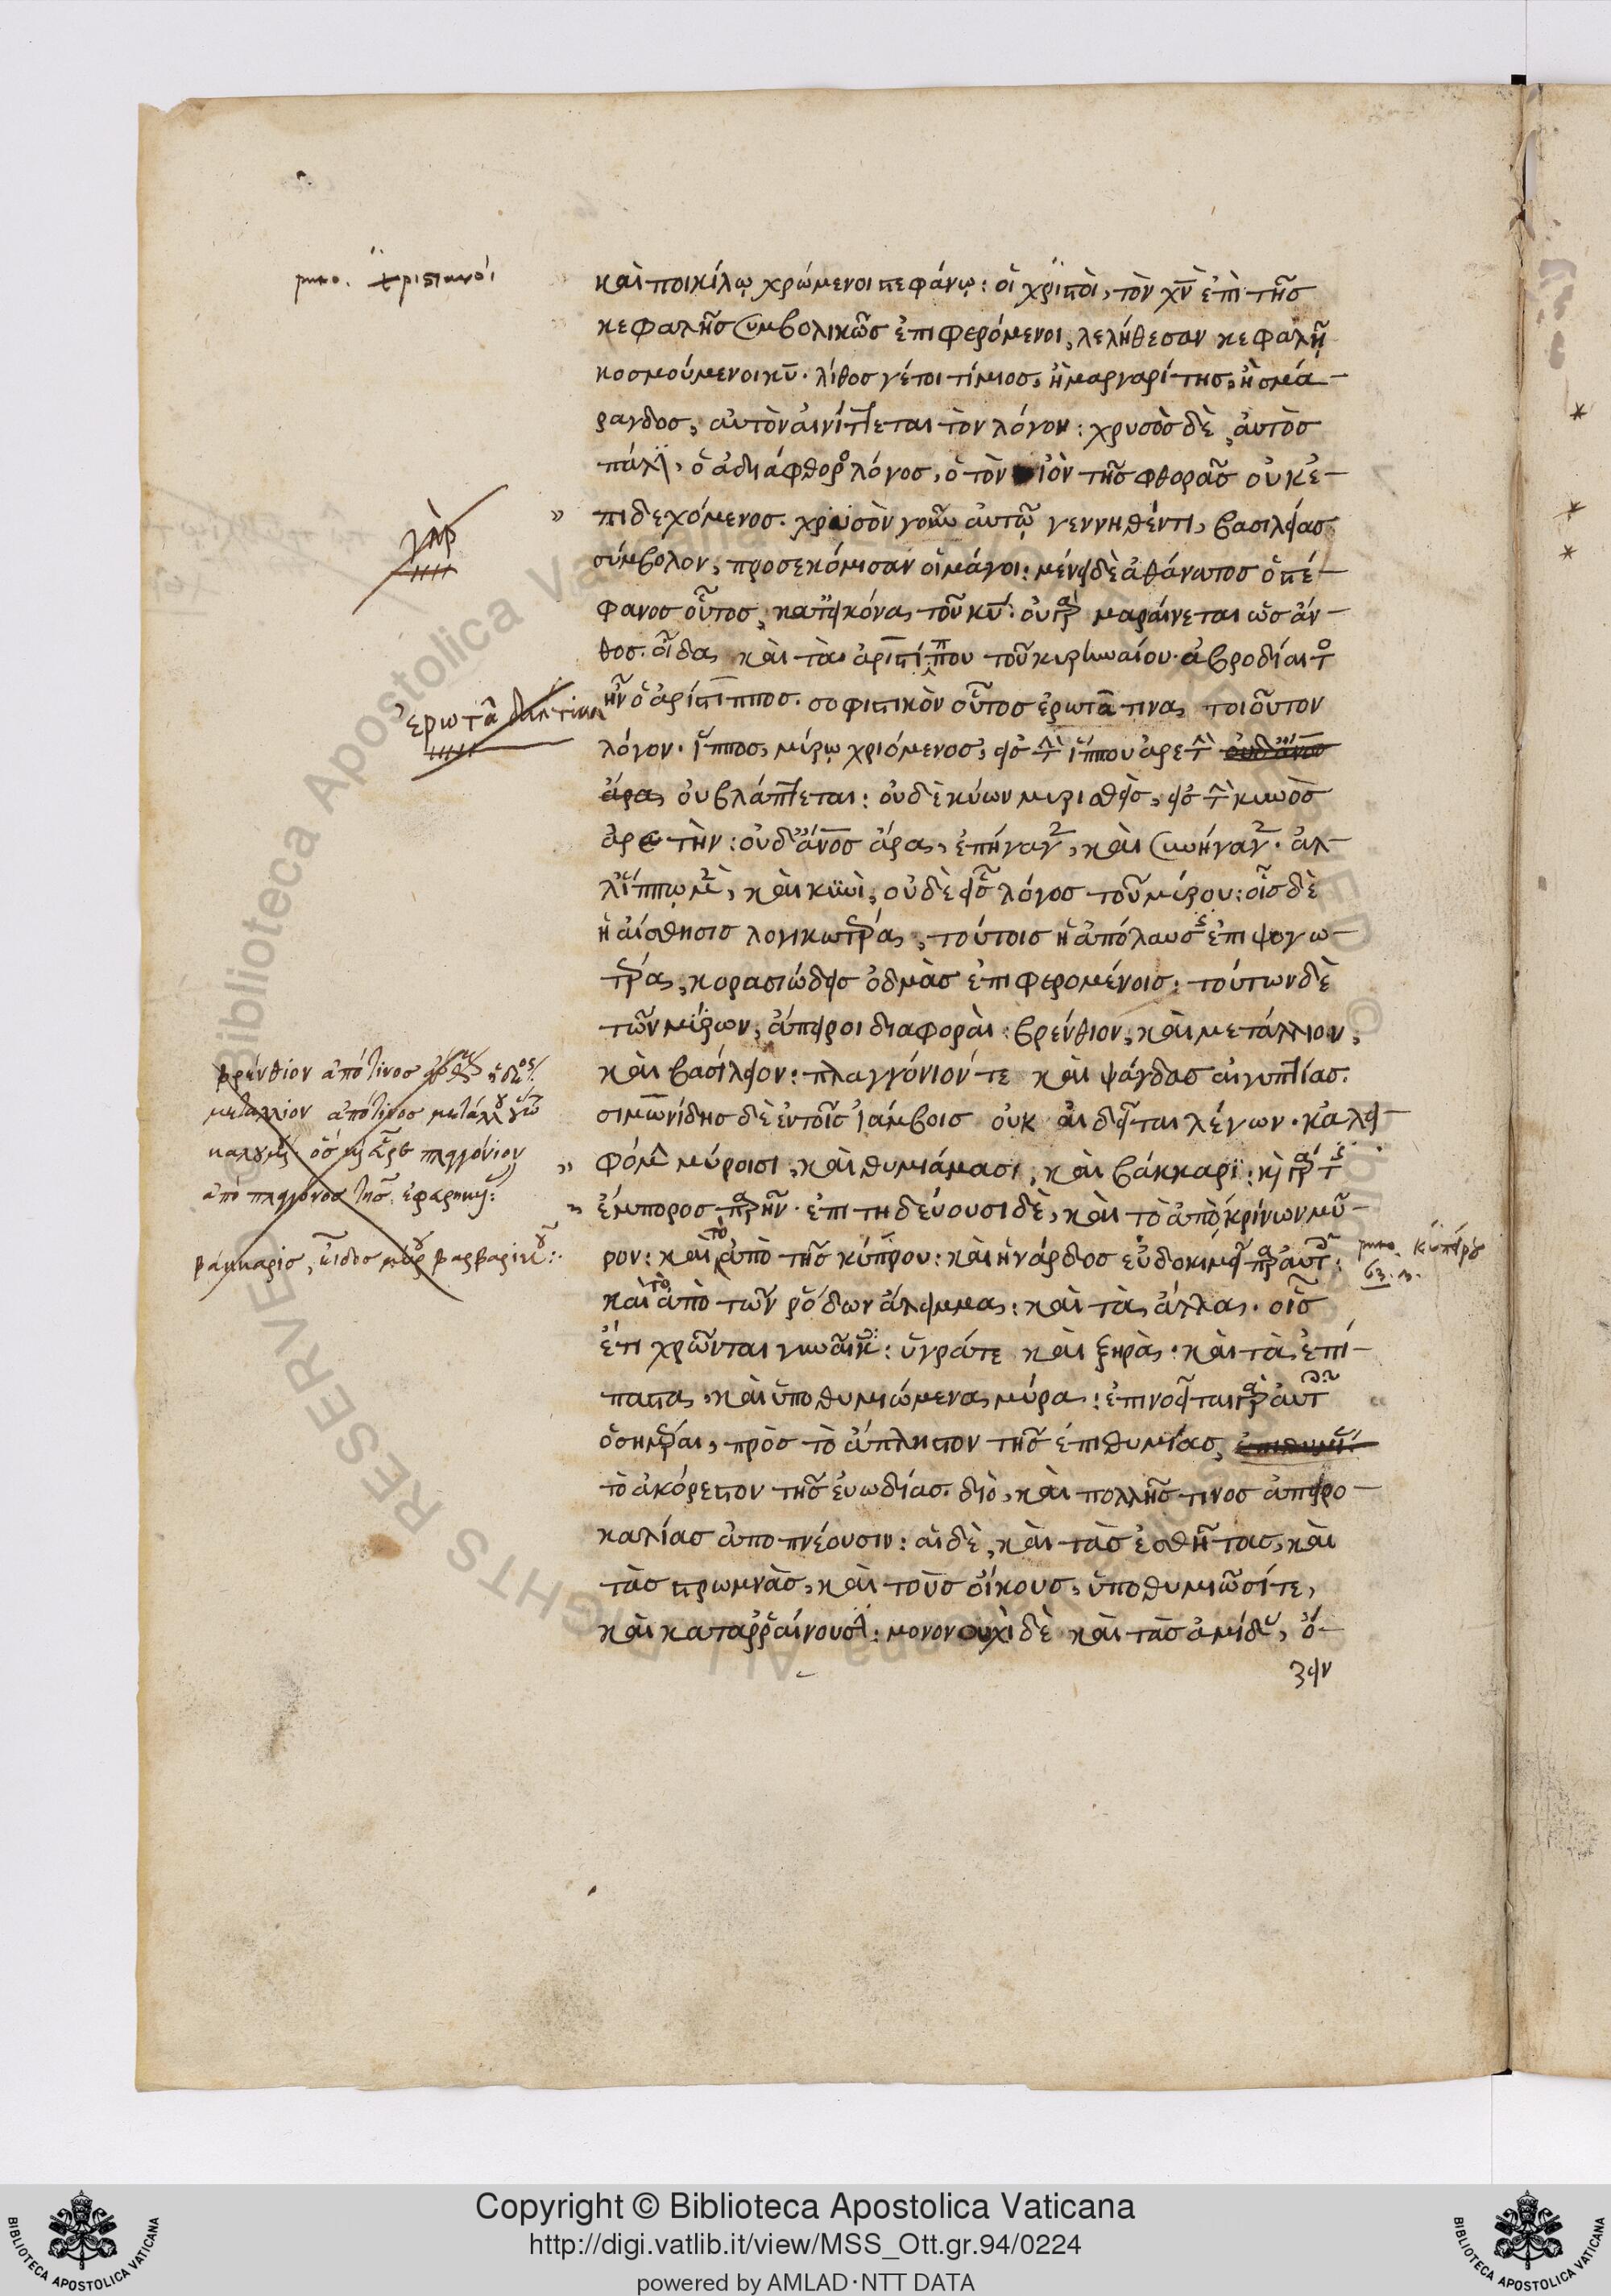 καὶ ποικίλῳ χρώμενοι στεφάνῳ: οἱ χϊριστοὶ, τὸν χν̅ ἐπὶ τῆσ
κεφαλῆσ συμβολικῶσ ἐπιφερόμενοι, λελήθεσαν κεφαλῇ
κοσμούμενοι κυ̅. λίθος γέ τοι τίμιοσ, ἢ μαργαρίτησ, ἢ σμά-
ραγδοσ, αὐτὸν αἰνίττεται τὸν λόγον: χρυσὸσ δὲ, αὐτὸσ
πάλιν, ὁ ἀδιάφθορος λόγοσ, ὁ τὸν ἰὸν τῆσ φθορᾶσ οὐκ ἐ-
πιδεχόμενοσ. χρυσὸν γοῦν αὐτῷ γεννηθέντι, βασιλείασ
σύμβολον, προσεκόμισαν οἱ μάγοι: μένει δὲ ἀθάνατοσ ὁ στέ-
φανοσ οὗτοσ, κατ' εἰκόνα τοῦ κυ̅: οὐ γὰρ μαραίνεται ὡσ ἄν-
θοσ. οἶδα καὶ τὰ ἀριστίππου τοῦ κυρηναίου. ἁβροδίαιτος
ἦν ὁ ἀρίστιπποσ. σοφιστικὸν οὗτοσ ἐρωτᾶ τινα τοιοῦτον
λόγον. ἵπποσ, μύρῳ χριόμενοσ, εἰσ τὴν ἵππου ἀρετὴν οὐδ' ἄνο̅σ
ἄρα οὐ βλάπτεται: οὐδὲ κύων μυρισθεὶσ, εἰσ τὴν κυνὸσ
ἀρετὴν: οὐδ' ἄνο̅σ ἄρα, ἐπήγαγεν, καὶ συνήγαγεν. ἀλ-
λ' ἵππῳ μὲν, καὶ κυνὶ, οὐδὲ εἷς λόγοσ τοῦ μύρου: οἷσ δὲ
ἡ αἴσθησισ λογικωτέρα, τούτοισ ἡ ἀπόλαυσις ἐπιψογω-
τέρα, κορασιώδεισ ὀδμὰσ ἐπιφερομένοισ: τούτων δὲ
τῶν μύρων, ἄπειροι διαφοραὶ: βρένθιον, καὶ μετάλλιον,
καὶ βασίλειον: πλαγγόνιόν τε καὶ ψάγδασ αἰγυπτίασ.
σιμωνίδησ δὲ ἐν τοῖσ ἰάμβοισ οὐκ αἰδεῖται λέγων. κἀλει-
φόμην μύροισι, καὶ θυμιάμασι, καὶ βάκκαρι: κὶ γάρ τις
ἔμποροσ παρῆν. ἐπιτηδεύουσι δὲ, καὶ τὸ ἀπὸ κρίνων μύ-
ρον: καὶ τὸ ἀπὸ τῆσ κύπρου: καὶ ἡ νάρδοσ εὐδοκιμεῖ παρ' αὐταῖς:
καὶ τὸ ἀπὸ τῶν ῥόδων ἄλειμμα: καὶ τὰ ἄλλα. οἷσ
ἔτι χρῶνται γυναῖκες: ὑγρά τε καὶ ξηρὰ: καὶ τὰ ἐπί-
παστα, καὶ ὑποθυμιώμενα μύρα: ἐπινοεῖται γὰρ αὐταῖς
ὁσημέραι, πρὸσ τὸ ἄπληστον τῆσ ἐπιθυμίασ,
τὸ ἀκόρεστον τῆσ εὐωδίασ. διὸ, καὶ πολλῆσ τινοσ ἀπειρο-
καλίασ ἀποπνέουσιν: αἱ δὲ, καὶ τὰσ ἐσθῆτασ, καὶ
τὰσ στρωμνὰσ, καὶ τοὺσ οἴκουσ, ὑποθυμιῶσί τε,
καὶ καταρῥαίνουσι: μονονουχὶ δὲ καὶ τὰσ ἀμίδας, ὄ-
ζειν
χριστιανοί
γὰρ
ἐρωτᾷ
βρένθιον ἀπό τινοσ
μεταλλίον ἀπό τινοσ μετάλλου
πλαγγόνιον
ἀπὸ πλαγγόνοσ τῆσ εὑρηκυίας:
βάκκαρισ, εἶδοσ μύρου βαρβαρικοῦ:
κυπέρου
Copyright © Biblioteca Apostolica Vaticana
http://digi.vatlib.it/view/MSS_Ott.gr.94/0224
powered by AMLAD·NTT DATA
BIBLIOTECA APOSTOLICA VATICANA
BIBLIOTECA APOSTOLICA VATICANA